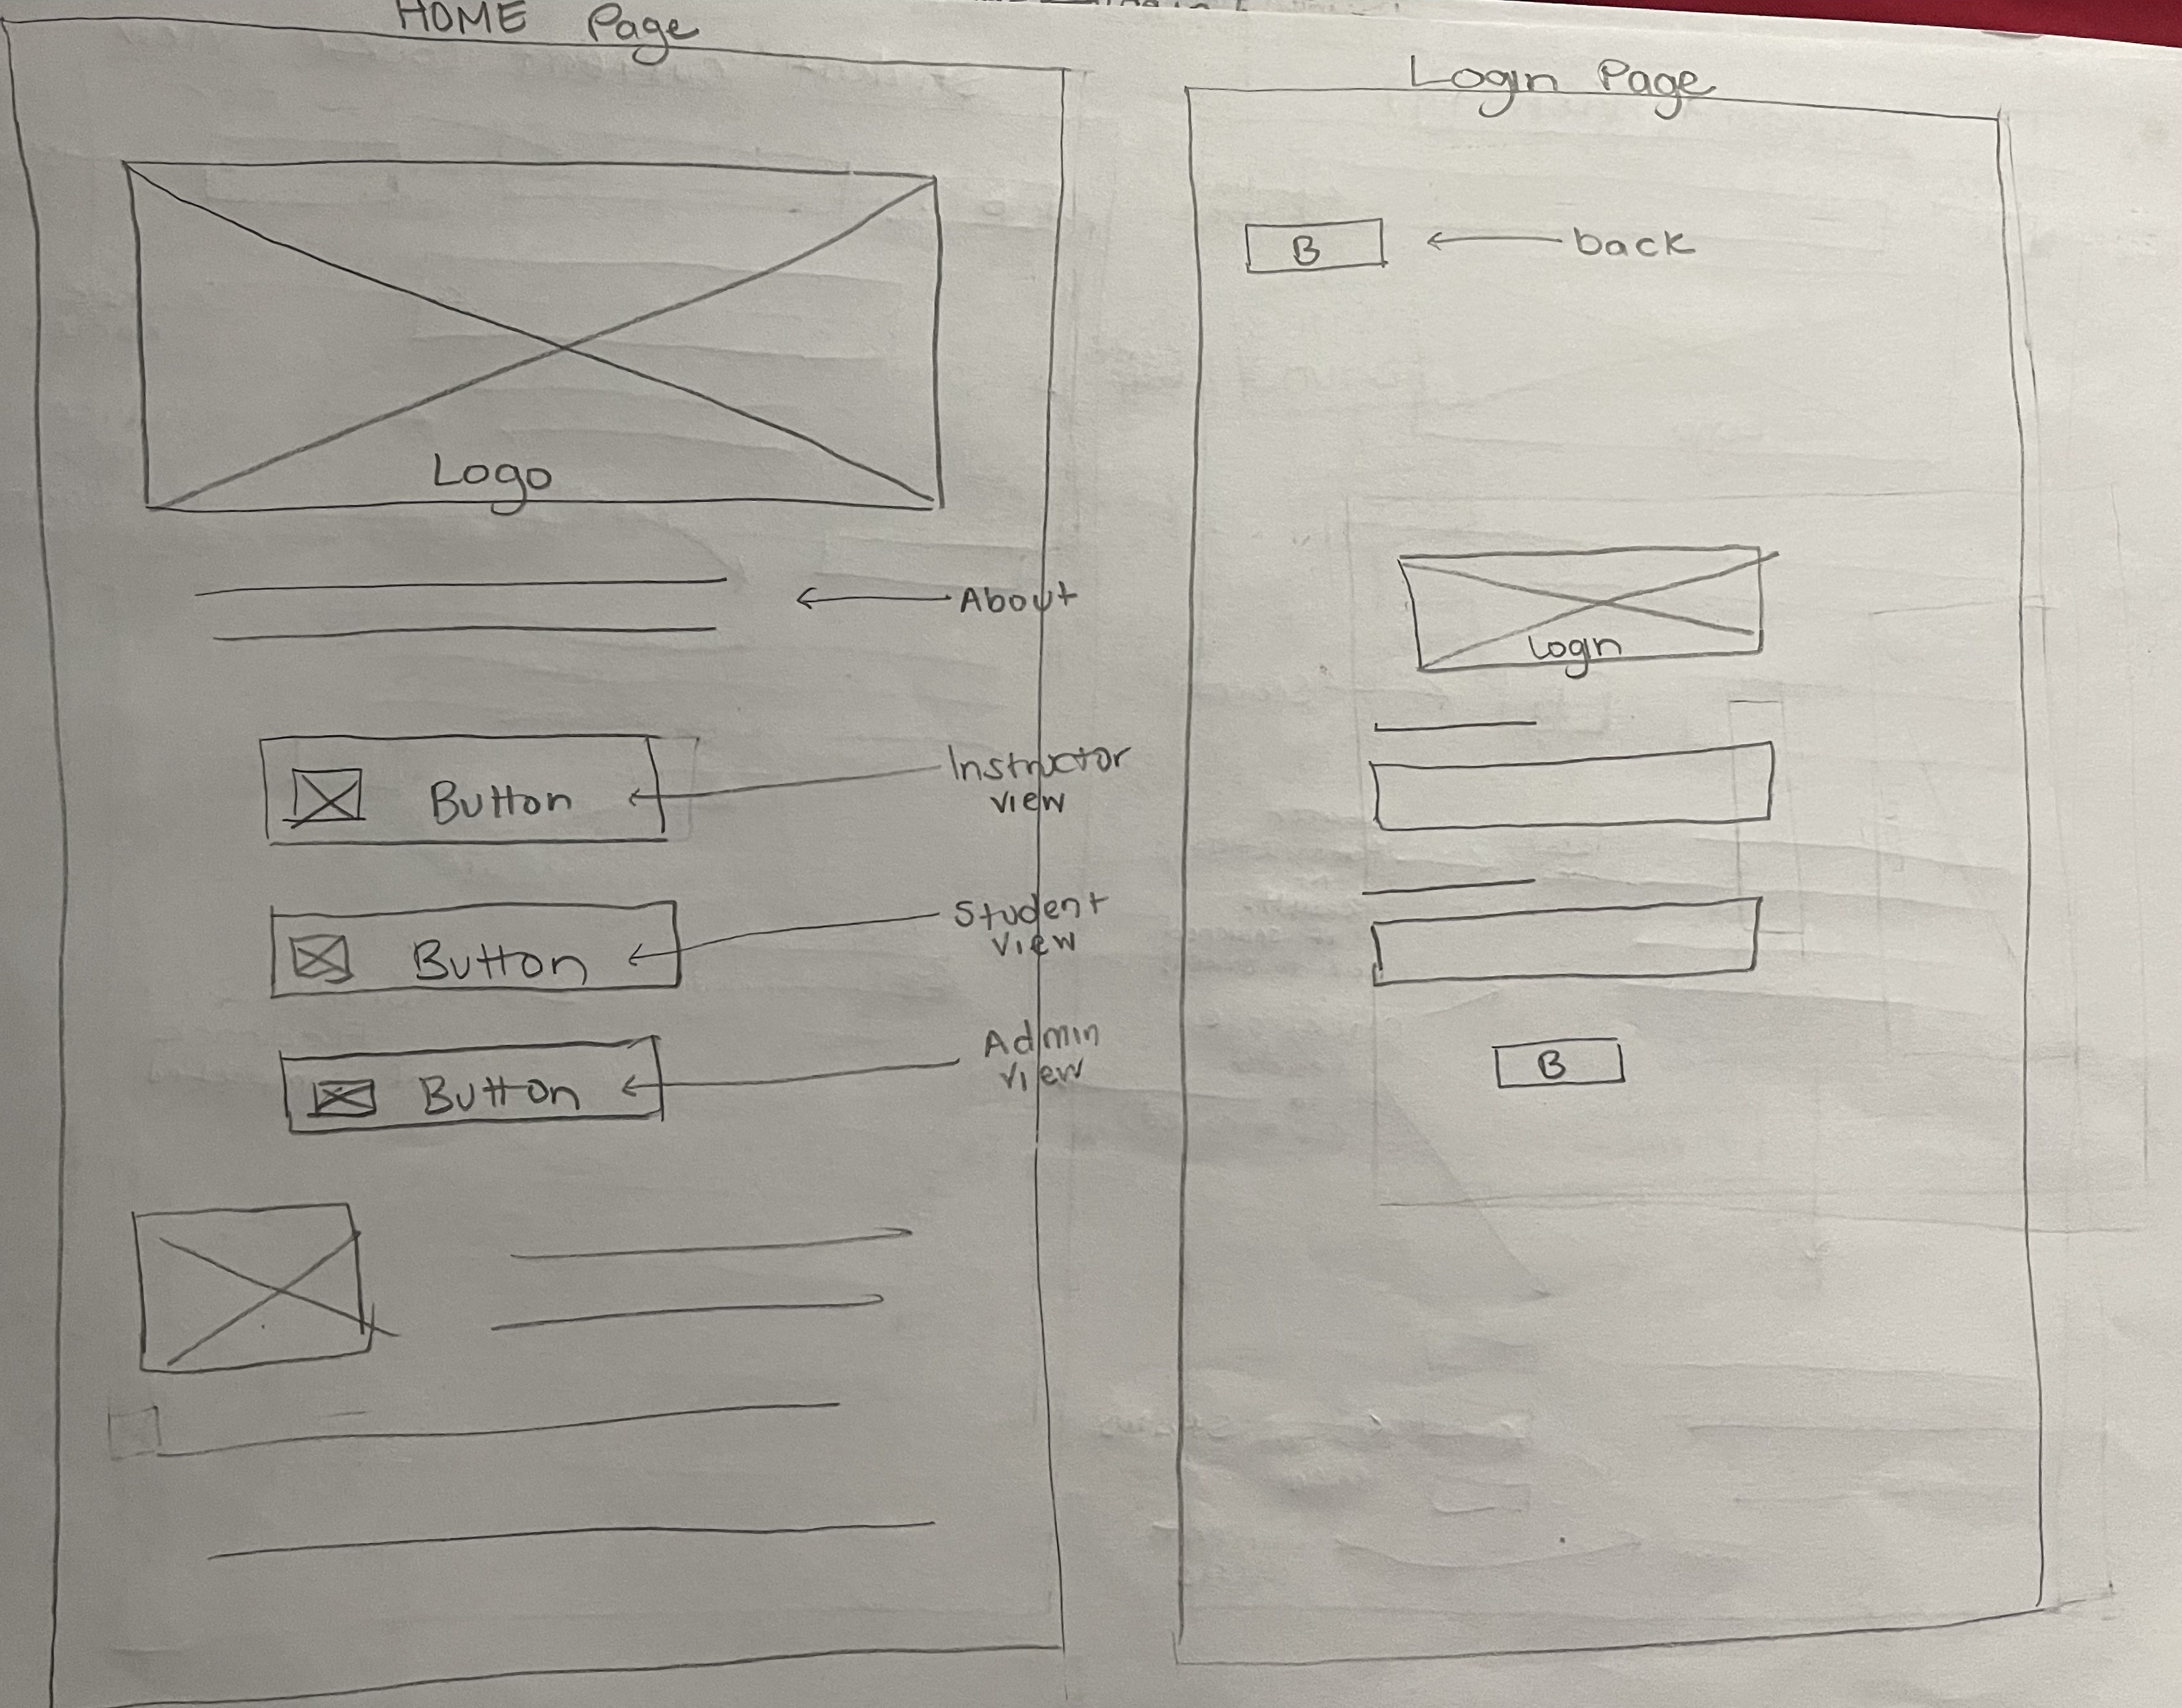 HOME Page
Logo
About
Button
Instructor
view
Button
Student
view
Button
Admin
view
Login Page
B
back
Login
B